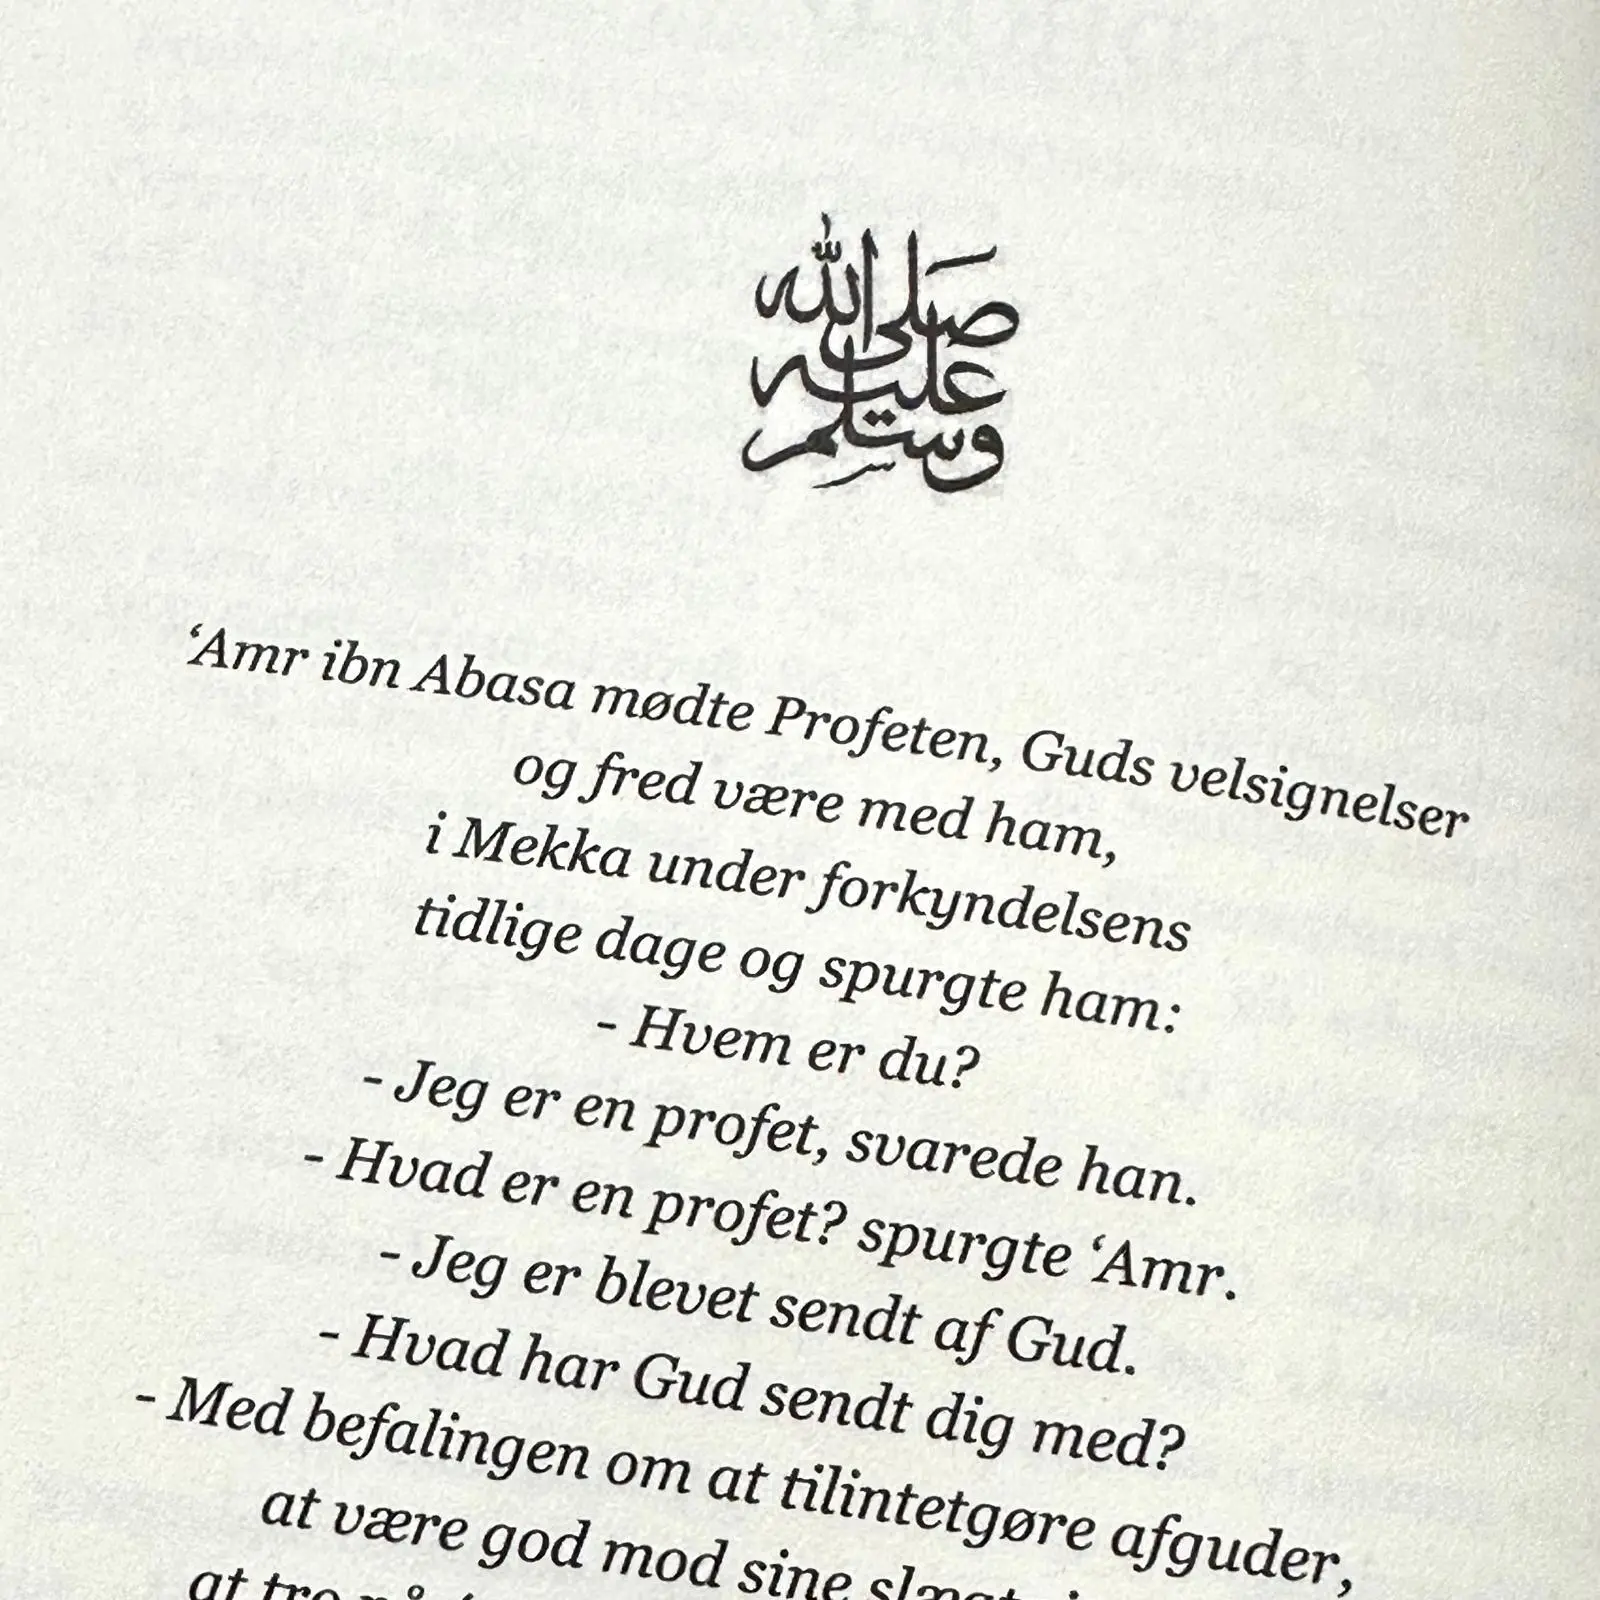 صلى الله
عليه
وسلم
‘Amr ibn Abasa mødte Profeten, Guds velsignelser
og fred være med ham,
i Mekka under forkyndelsens
tidlige dage og spurgte ham:
- Hvem er du?
- Jeg er en profet, svarede han.
- Hvad er en profet? spurgte ‘Amr.
- Jeg er blevet sendt af Gud.
- Hvad har Gud sendt dig med?
- Med befalingen om at tilintetgøre afguder,
at være god mod sine
at tro på